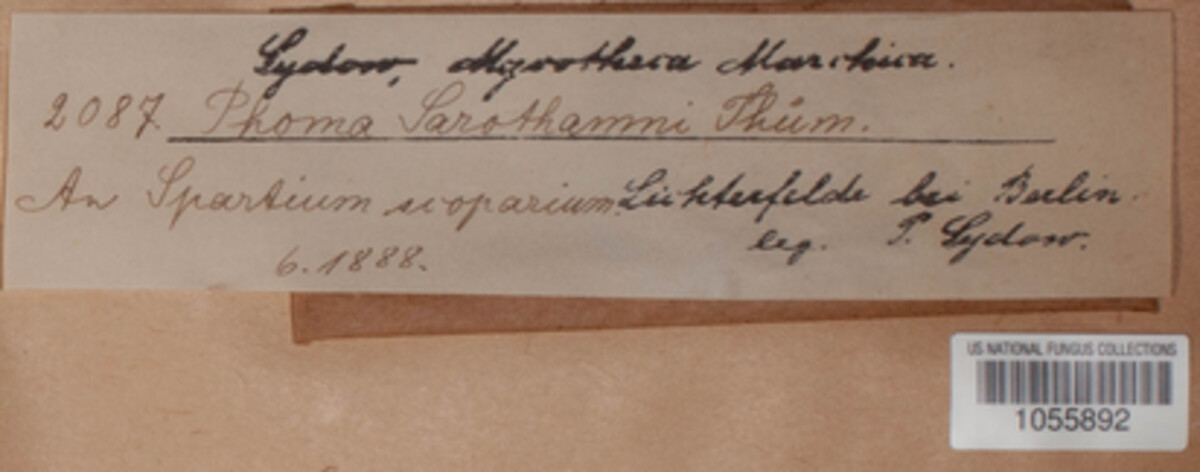 Sydow, Mycotheca Marchica.
2087. Phoma Sarothamni Thüm.
An Spartium scoparium. Lichterfelde bei Berlin.
6.1888. leg. P. Sydow.
US NATIONAL FUNGUS COLLECTIONS
1055892